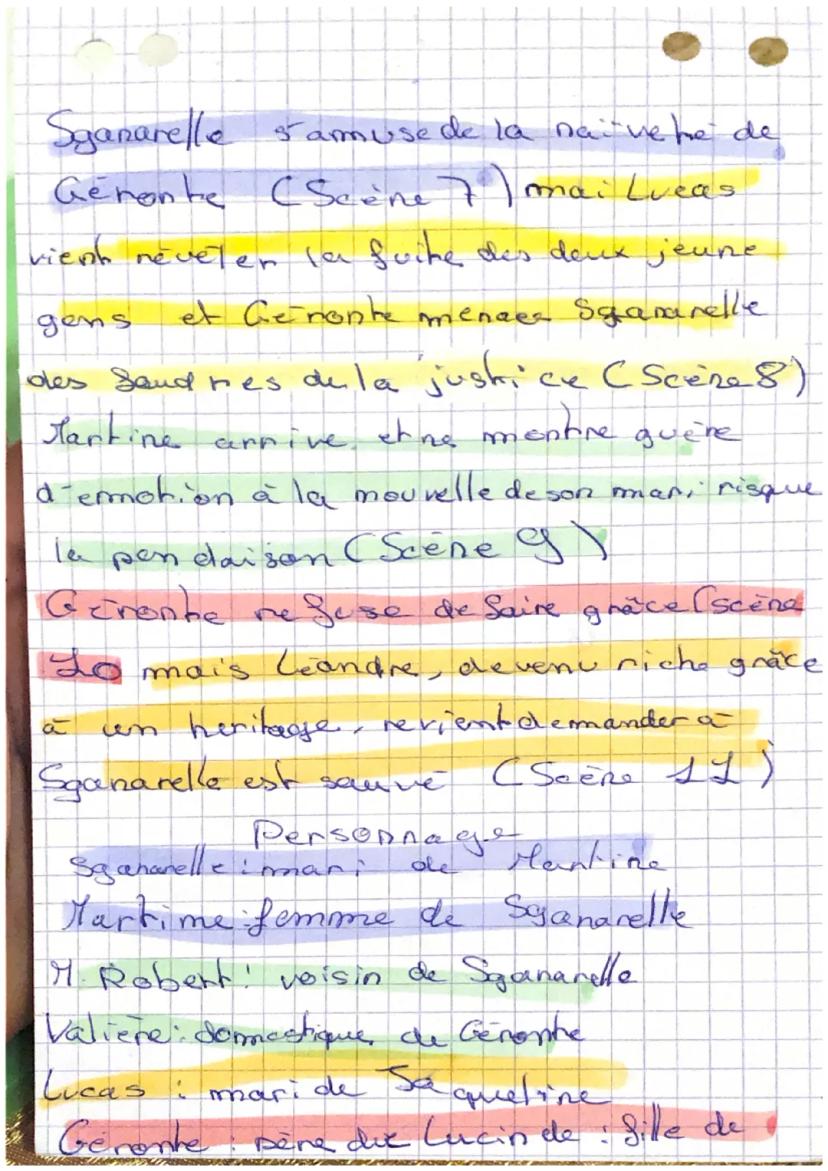 Sganarelle s'amuse de la naïveté de
Géronte (Scène 7) mai Lucas
vient révéler la fuite des deux jeune
gens et Géronte menace Sganarelle
des foudres de la justice (Scène 8)
Martine arrive et ne montre guère
d'emotion à la nouvelle de son mari risque
la pendaison (Scène 9)
Géronte refuse de faire grâce (scène
10 mais Léandre, devenu riche grâce
à un heritage, revient demander à
Sganarelle est sauvé (Scène 11)
Personnage
Sganarelle : mari de Martine
Martime : femme de Sganarelle
M. Robert : voisin de Sganarelle
Valière : domestique de Géronte
Lucas : mari de Jaqueline
Géronte : père due Lucinde : fille de